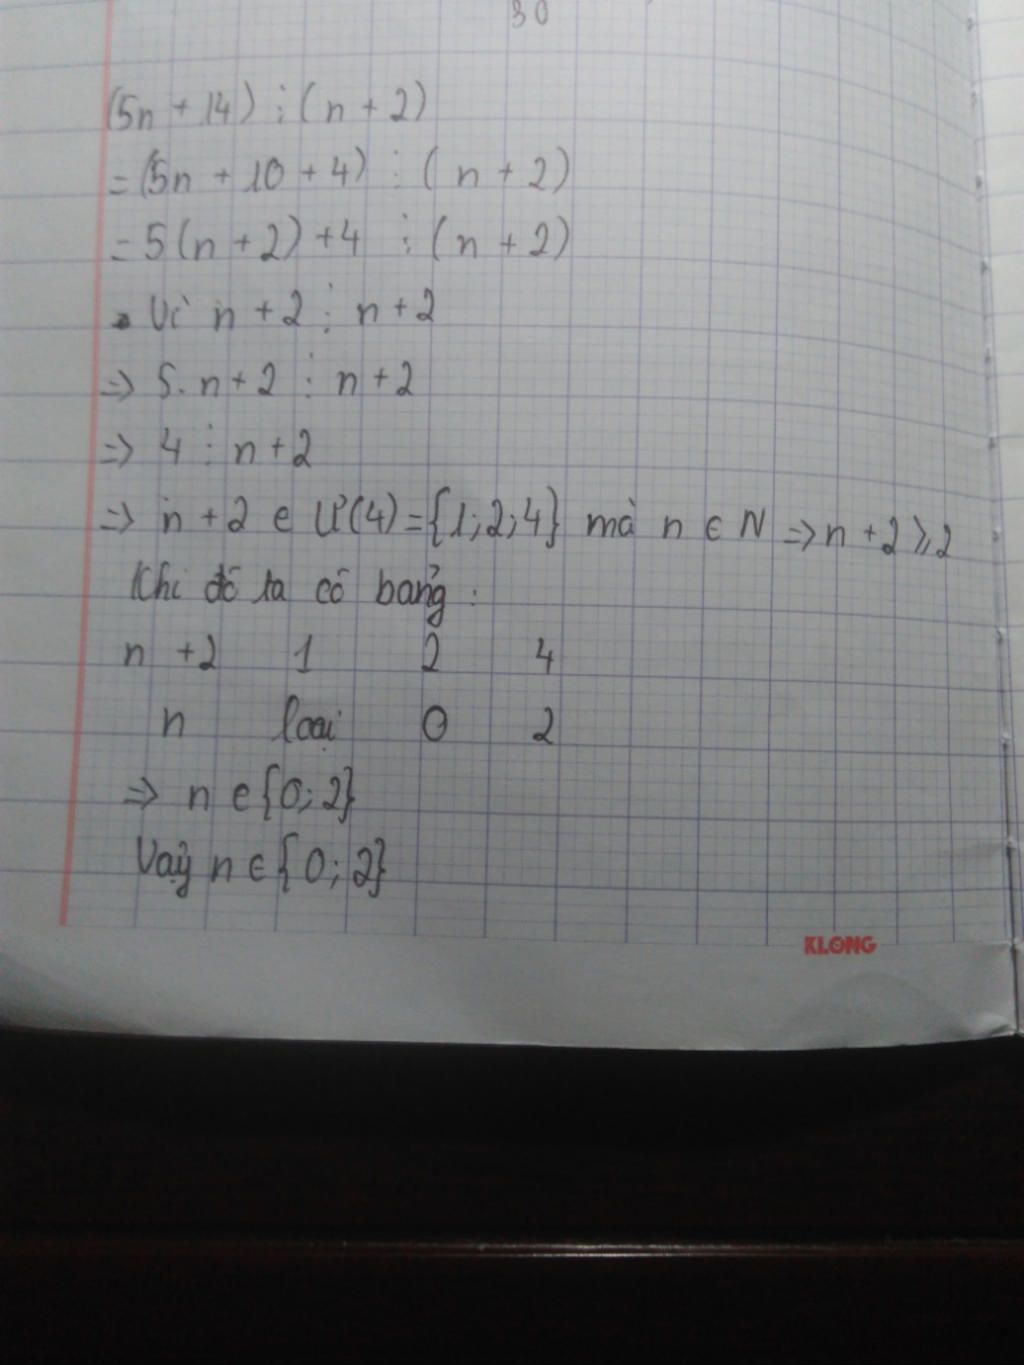 30
(5n + 14) ⋮ (n + 2)
= (5n + 10 + 4) ⋮ (n + 2)
= 5(n + 2) + 4 ⋮ (n + 2)
Vì n + 2 ⋮ n + 2
=> 5. n + 2 ⋮ n + 2
=> 4 ⋮ n + 2
=> n + 2 ∈ Ư(4) = {1; 2; 4} mà n ∈ N => n + 2 ⩾ 2
Khi đó ta có bảng :
n + 2 1 2 4
n loại 0 2
=> n ∈ {0; 2}
Vậy n ∈ {0; 2}
KLONG